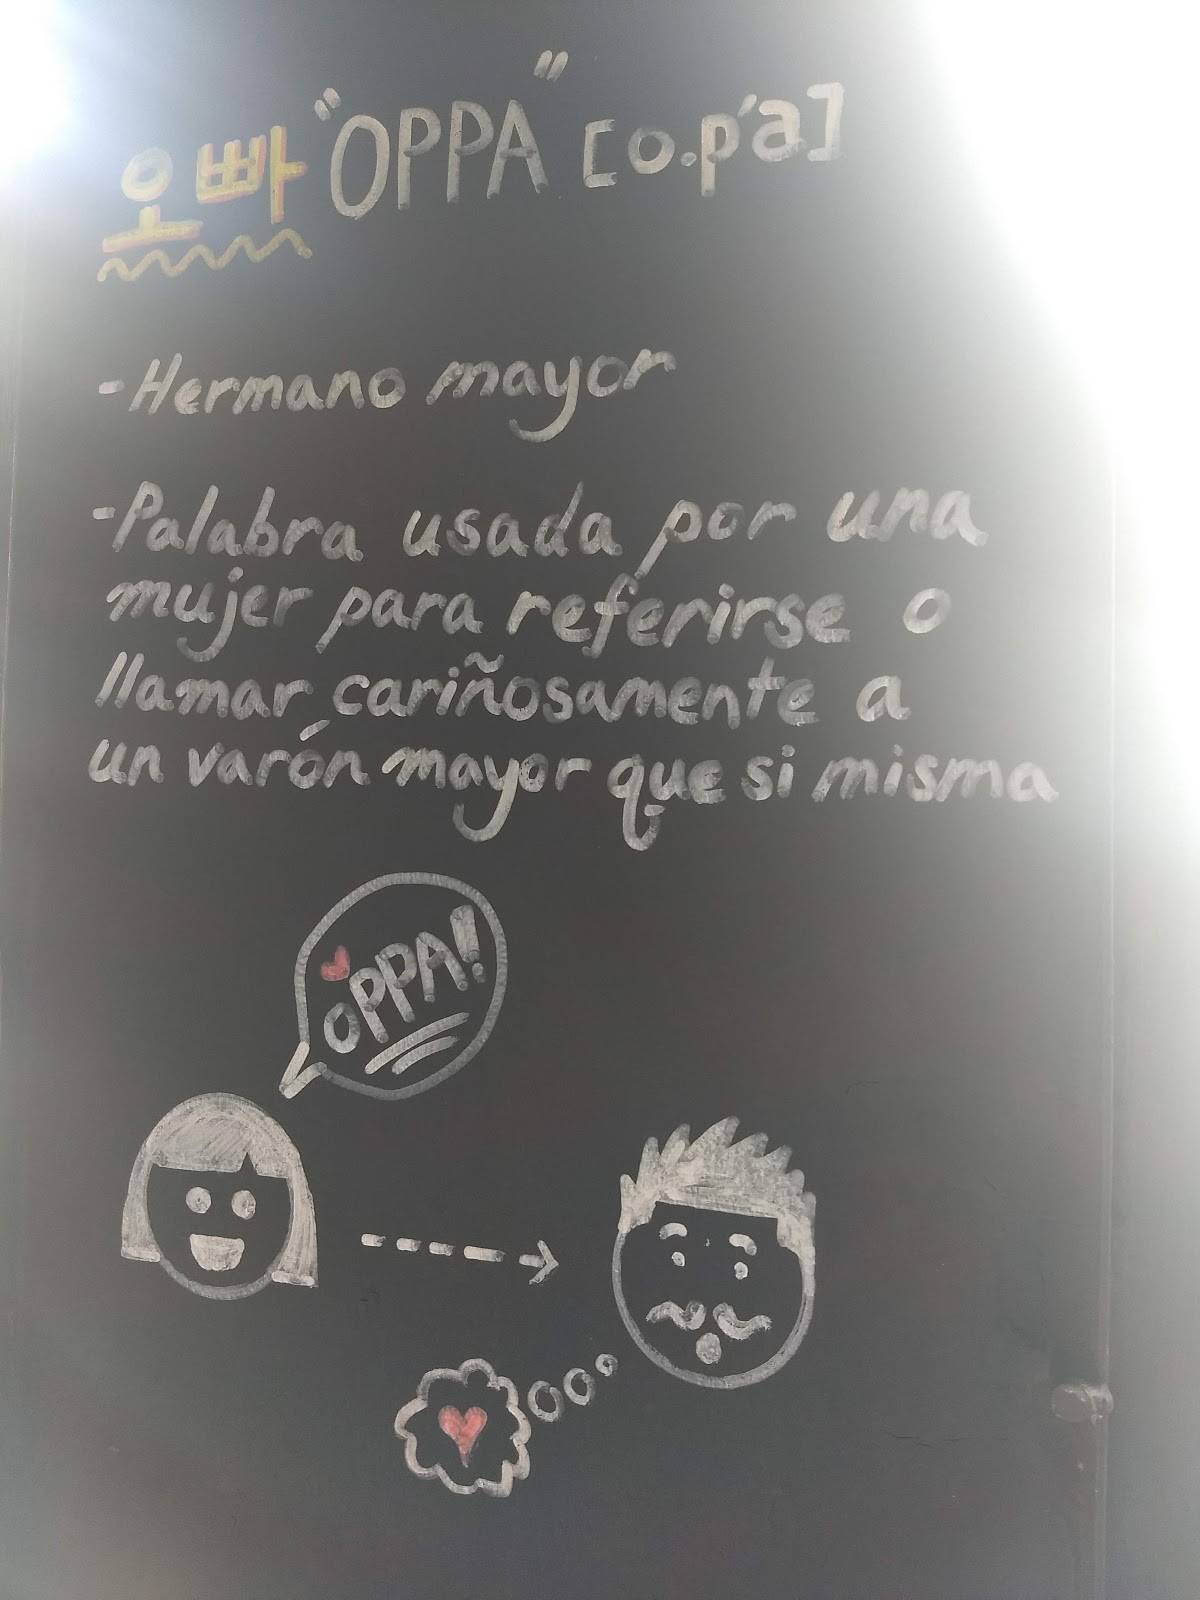 오빠 "OPPA" [o.p'a]
-Hermano mayor
-Palabra usada por una
mujer para referirse o
llamar cariñosamente a
un varón mayor que si misma
OPPA!